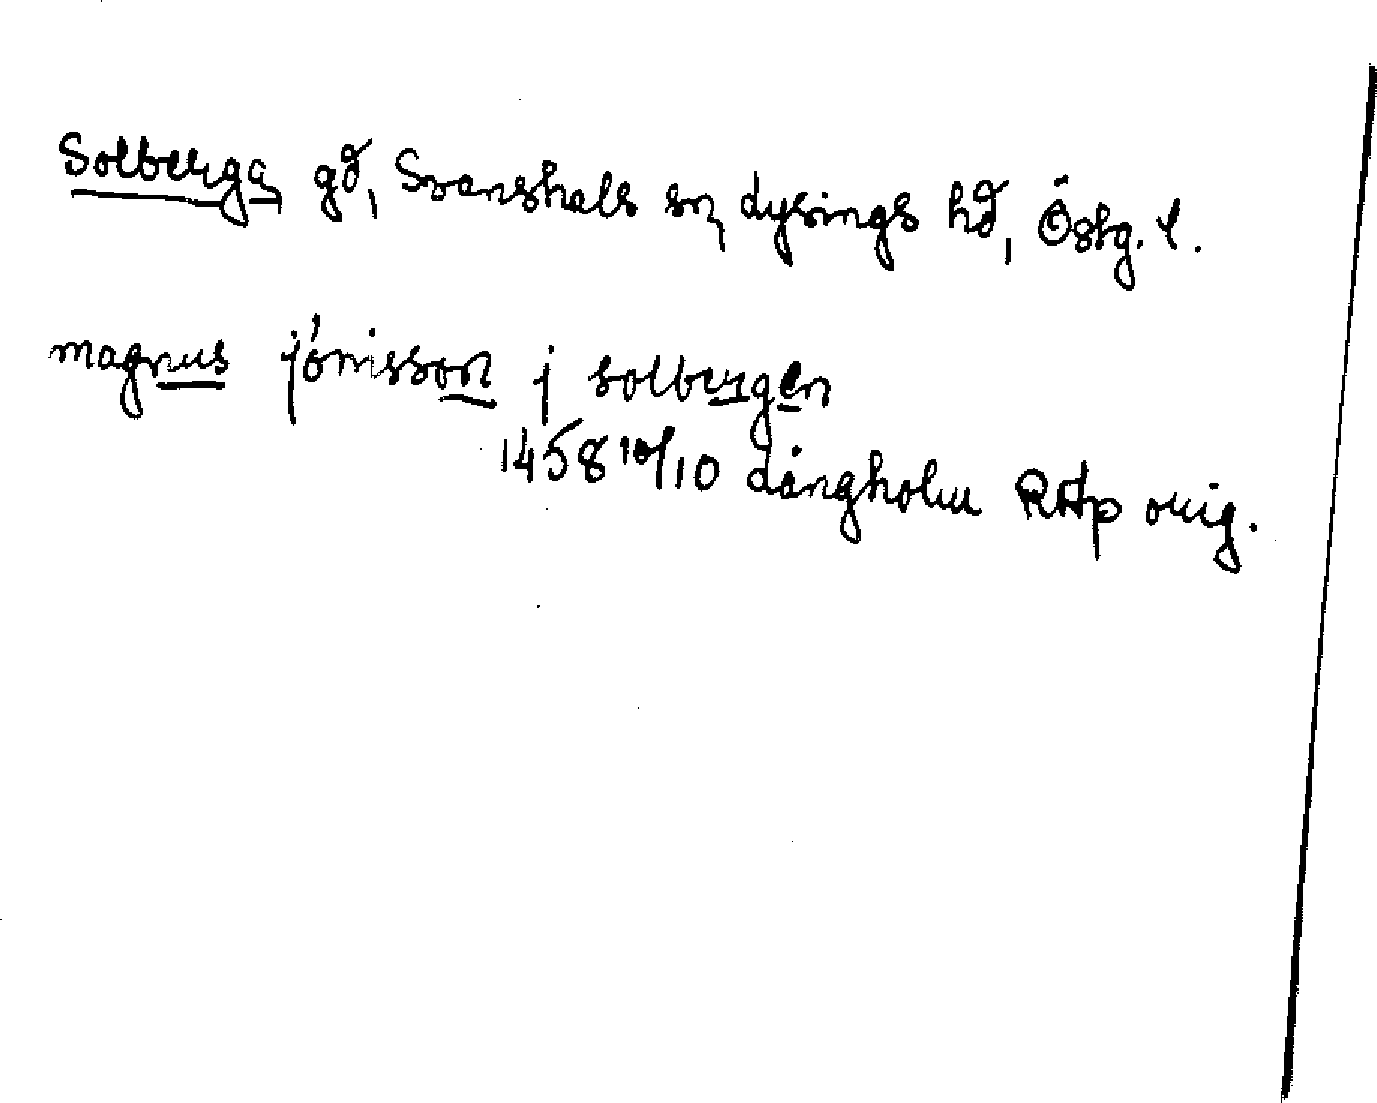 Solberga gd, Svanshals sn, Lysings hd, Östg. l.
magnus jönisson j solbergen
1458 10/10 Långholm RAp orig.